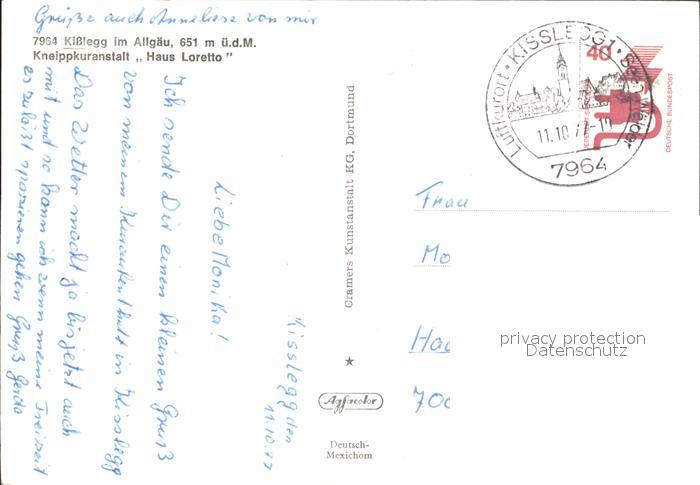 Grüße auch Anneliese von mir
7964 Kißlegg im Allgäu, 651 m ü.d.M.
Kneippkuranstalt „ Haus Loretto "
Kisslegg den
11.10.77
Liebe Monika!
Ich sende Dir einen kleinen Gruß
von meinem Kuraufenthalt in Kisslegg
Das Wetter macht ja bis jetzt auch
mit und so kann ich wenn meine Freizeit
es zulässt spazieren gehen Gruß Gerda
Cramers Kunstanstalt KG, Dortmund
Agfacolor
Deutsch-
Mexichom
Luftkurort · KISSLEGG 1 ·
11.10.77-
7964
40
DEUTSCHE BUNDESPOST
Frau
Mo
Ha
70
privacy protection
Datenschutz